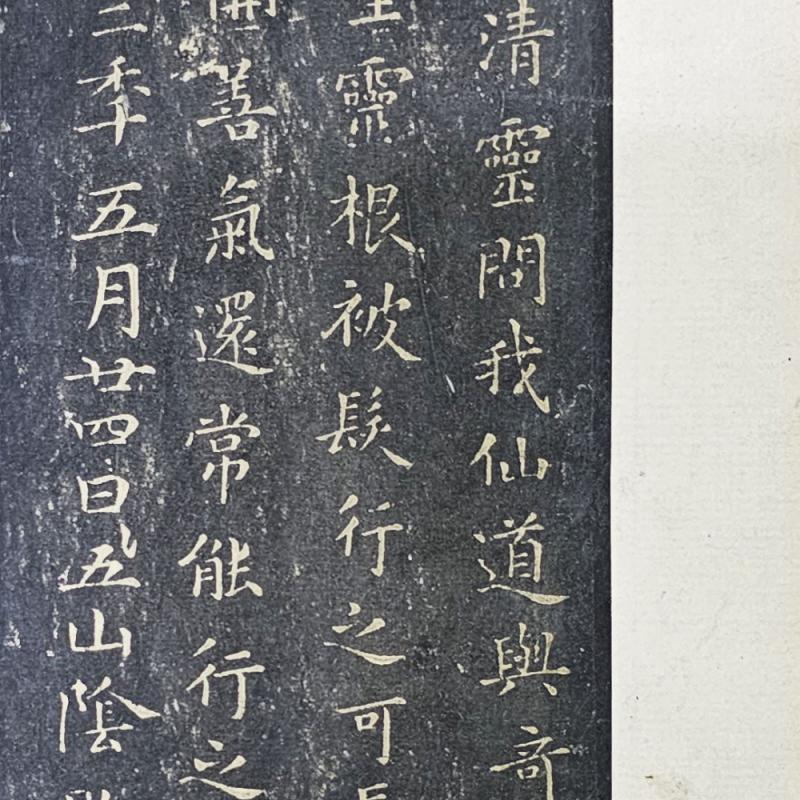 清靈問我仙道與奇
靈根被髮行之可
開善氣還常能行之
二秊五月廿四日五山陰